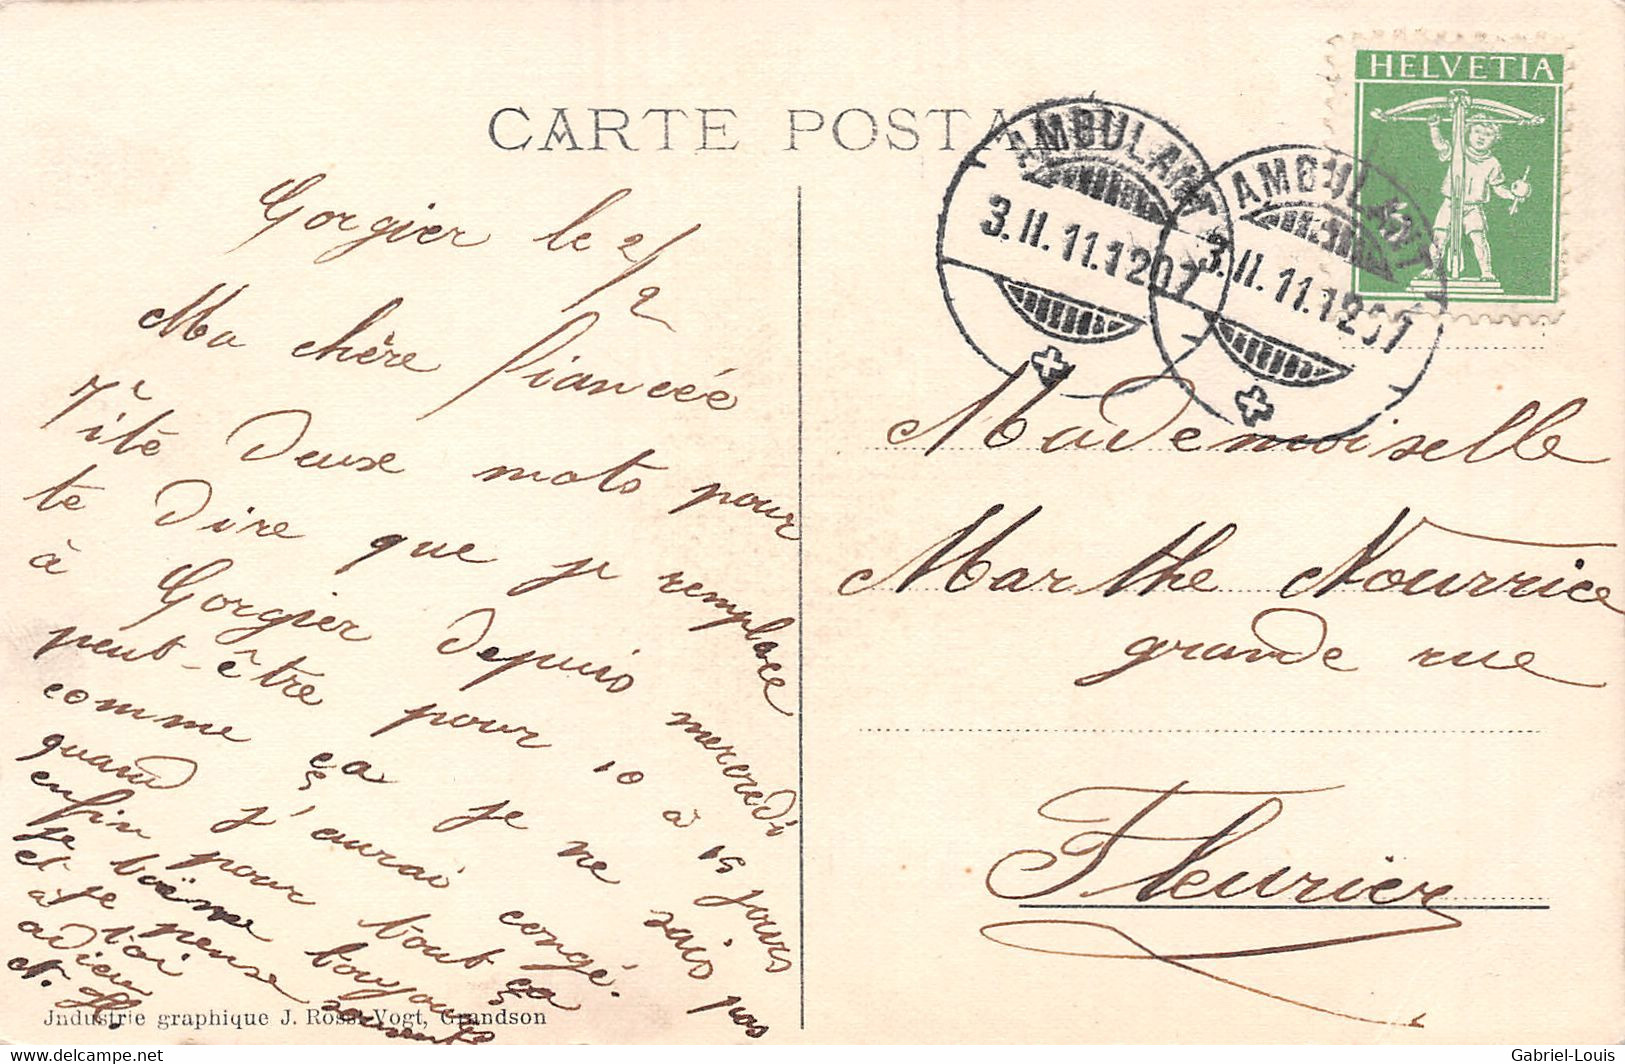 CARTE POSTA
HELVETIA
AMBULANT
3.II.11.1207
AMBULANT
3.II.11.1207
Gorgier le 2/2
Ma chère fiancéé
Vite deux mots pour
te dire que je remplace
à Gorgier depuis mercredi
peut-être pour 10 à 15 jours
comme ça je ne sais pas
quand j'aurai congé.
enfin pour tout ça
je t'aime toujours
et je pense souvent
à toi
adieu
N. H.
Mademoiselle
Marthe Nourrice
grande rue
Fleurier
Industrie graphique J. Rossi-Vogt, Grandson
http://www.delcampe.net
Gabriel-Louis